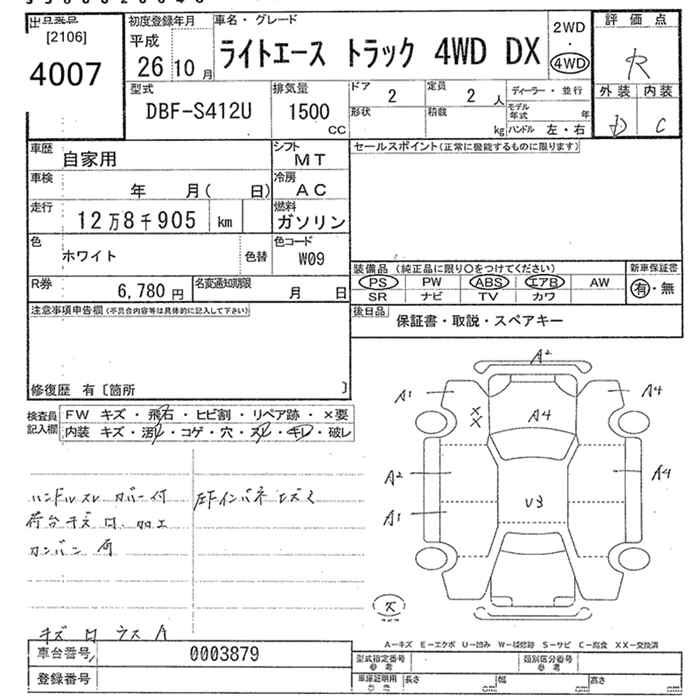 出品票
[2106]
4007
初度登録年月
平成
26 10月
車名・グレード
ライトエース トラック 4WD DX
2WD
・
4WD
評価点
R
外装 内装
D C
型式
DBF-S412U
排気量
1500
CC
ドア
2
定員
2 人
形状
積載
kg
ディーラー・並行
モデル年式 年
ハンドル 左・右
車歴
自家用
シフト
MT
セールスポイント(正常に機能するものに限ります)
車検
年 月( 日)
冷房
AC
走行
12万8千905 km
燃料
ガソリン
色
ホワイト
色替
色コード
W09
装備品 (純正品に限り○をつけてください)
新車保証書
PS PW ABS エアB AW
有・無
SR ナビ TV カワ
R券
6,780 円
名変通知期限
月 日
後日品
保証書・取説・スペアキー
注意事項申告欄(不具合内容等は具体的に記入して下さい)
修復歴 有〔箇所 〕
検査員
記入欄
FW キズ・飛石・ヒビ割・リペア跡・×要
内装 キズ・汚レ・コゲ・穴・スレ・キレ・破レ
A2
A1
A4
A4
××
A2
A4
A1
U3
ハンドルスレ カバー付
荷台キズ 凹 加工
カンバン 有
キズ 凹 ウス A
A－キズ E－エクボ U－凹み W－補修跡 S－サビ C－腐食 XX－交換済
車台番号
0003879
登録番号
型式指定番号
参考
類別区分番号
参考
車庫証明用
参考
長さ cm
幅 cm
高さ cm